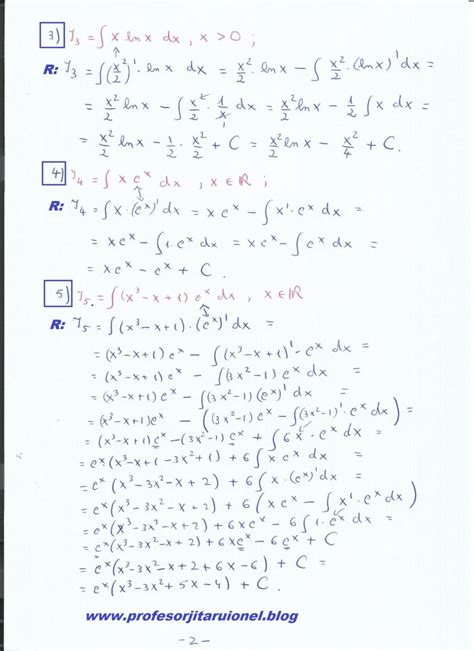 3) I₃ = ∫ x ln x dx , x > 0 ;
R: I₃ = ∫ (x²/2)' · ln x dx = x²/2 · ln x - ∫ x²/2 · (ln x)' dx =
= x²/2 ln x - ∫ x²/2 · 1/x dx = x²/2 ln x - 1/2 ∫ x dx =
= x²/2 ln x - 1/2 · x²/2 + C = x²/2 ln x - x²/4 + C.
4) I₄ = ∫ x eˣ dx , x ∈ ℝ ;
R: I₄ = ∫ x · (eˣ)' dx = x eˣ - ∫ x' · eˣ dx =
= x eˣ - ∫ 1 · eˣ dx = x eˣ - ∫ eˣ dx =
= x eˣ - eˣ + C .
5) I₅ = ∫ (x³ - x + 1) eˣ dx , x ∈ ℝ
R: I₅ = ∫ (x³ - x + 1) · (eˣ)' dx =
= (x³ - x + 1) eˣ - ∫ (x³ - x + 1)' · eˣ dx =
= (x³ - x + 1) eˣ - ∫ (3x² - 1) eˣ dx =
= (x³ - x + 1) eˣ - ∫ (3x² - 1) (eˣ)' dx =
= (x³ - x + 1) eˣ - ((3x² - 1) eˣ - ∫ (3x² - 1)' · eˣ dx) =
= (x³ - x + 1) eˣ - (3x² - 1) eˣ + ∫ 6x · eˣ dx =
= eˣ (x³ - x + 1 - 3x² + 1) + 6 ∫ x eˣ dx =
= eˣ (x³ - 3x² - x + 2) + 6 ∫ x · (eˣ)' dx =
= eˣ (x³ - 3x² - x + 2) + 6 (x eˣ - ∫ x' · eˣ dx) =
= eˣ (x³ - 3x² - x + 2) + 6x eˣ - 6 ∫ 1 · eˣ dx =
= eˣ (x³ - 3x² - x + 2) + 6x eˣ - 6 eˣ + C
= eˣ (x³ - 3x² - x + 2 + 6x - 6) + C =
= eˣ (x³ - 3x² + 5x - 4) + C .
www.profesorjitaruionel.blog
- 2 -